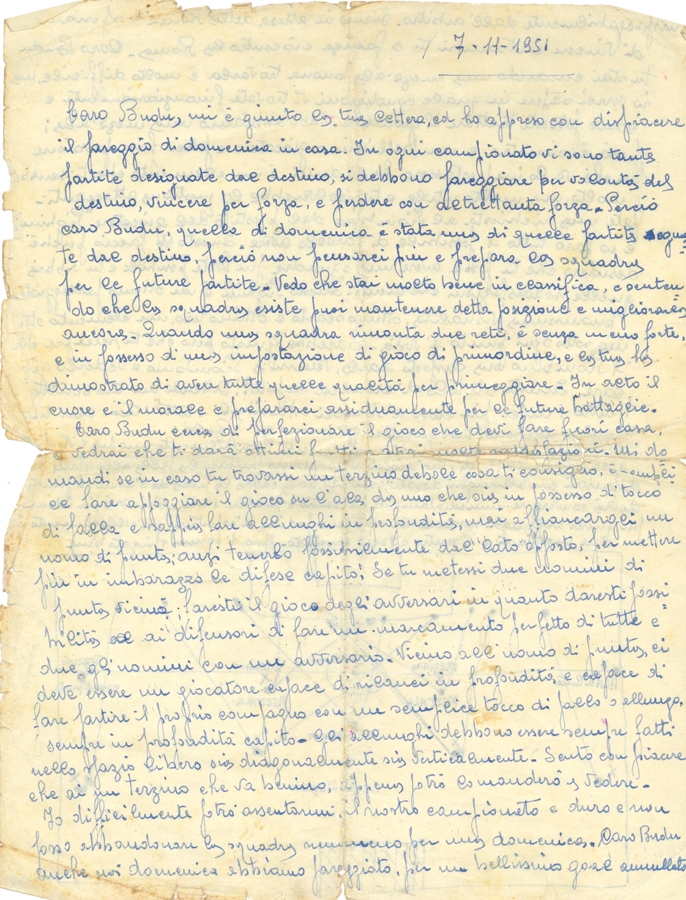 7-11-1951
Caro Budu, mi è giunto la tua lettera, ed ho appreso con dispiacere
il pareggio di domenica in casa. In ogni campionato vi sono tante
partite designate dal destino, si debbono pareggiare per volontà del
destino, vincere per forza, e perdere con altrettanta forza. Perciò
caro Budu, quella di domenica è stata una di quelle partite segna-
te dal destino, perciò non pensarci più e prepara la squadra
per le future partite. Vedo che stai molto bene in classifica, e senten
do che la squadra esiste puoi mantenere detta posizione e migliorarla
ancora. Quando una squadra rimonta due reti, è senza meno forte,
e in possesso di una impostazione di gioco di primordine, e la tua ha
dimostrato di avere tutte quelle qualità per primeggiare. In alto il
cuore e il morale e prepararci assiduamente per le future battaglie.
Caro Budu cerca di perfezionare il gioco che devi fare fuori casa,
e vedrai che ti darà ottimi frutti e avrai molte soddisfazioni. Mi do
mandi se in caso tu trovassi un terzino debole cosa ti consiglio, è sempli
ce fare appoggiare il gioco su l'ala da uno che sia in possesso di tocco
di palla e sappia fare allunghi in profondità, mai affiancargli un
uomo di punta, anzi tenerlo possibilmente dal lato opposto, per mettere
più in imbarazzo le difese capito! Se tu metessi due uomini di
punta vicina, faresti il gioco degli avversari in quanto daresti possi
bilità ai difensori di fare un marcamento perfetto di tutte e
due gli uomini con un avversario. Vicino all'uomo di punta, ci
deve essere un giocatore capace di rilanci in profondità, e capace di
fare partire il proprio compagno con un semplice tocco di palla o allungo,
sempre in profondità capito. Gli allunghi debbono essere sempre fatti
nello spazio libero sia diagonalmente sia verticalmente. Sento con piacere
che ai un terzino che va benino, appena potrò lo manderò a vedere.
Io difficilmente potrò assentarmi, il nostro campionato è duro e non
posso abbandonare la squadra nemmeno per una domenica. Caro Budu
anche noi domenica abbiamo pareggiato, per un bellissimo goal annullato